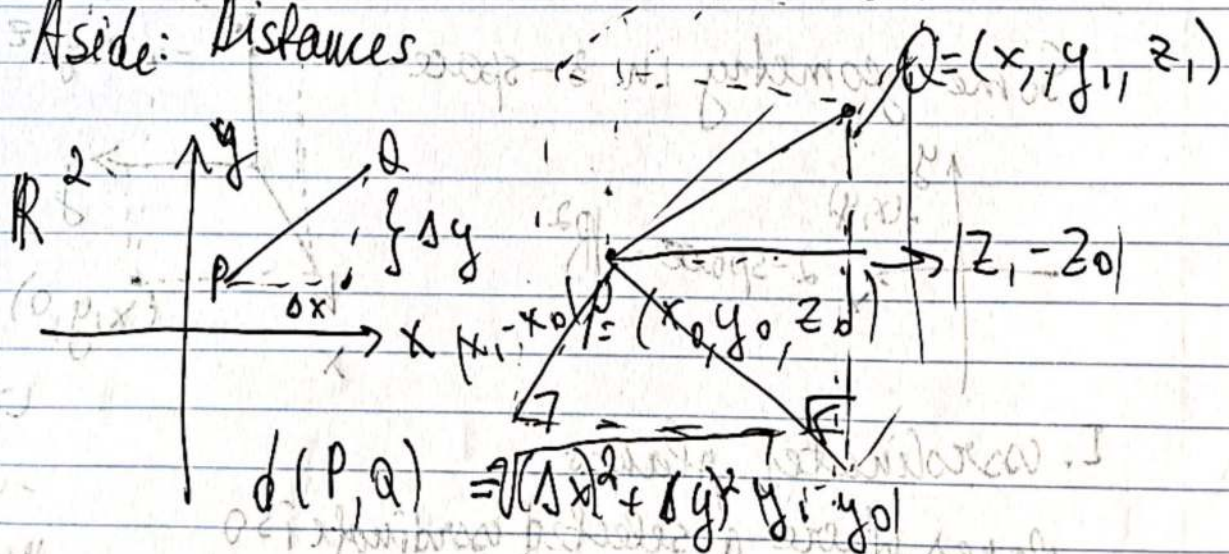 Aside: Distances
Q=(x₁, y₁, z₁)
ℝ²
y
Q
} Δy
P
Δx
x
|x₁-x₀|
P = (x₀, y₀, z₀)
|z₁-z₀|
d(P,Q) = √(Δx)²+Δy)²
|y₁-y₀|